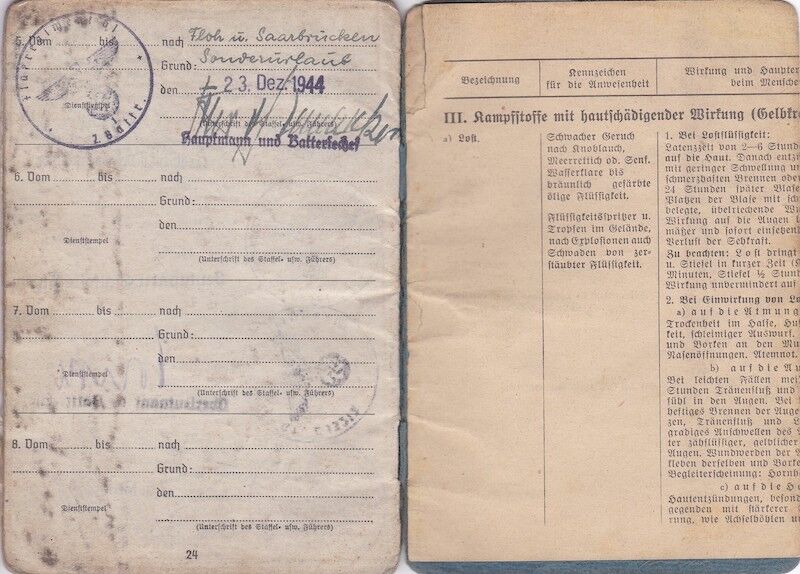 5. Vom bis nach Floh u. Saarbrücken
Grund: Sonderurlaub
den 23. Dez. 1944
Dienststempel
(Unterschrift des Staffel- usw. Führers)
Hauptmann und Batteriechef
6. Vom bis nach
Grund:
den
Dienststempel
(Unterschrift des Staffel- usw. Führers)
7. Vom bis nach
Grund:
den
Dienststempel
(Unterschrift des Staffel- usw. Führers)
8. Vom bis nach
Grund:
den
Dienststempel
(Unterschrift des Staffel- usw. Führers)
24
Bezeichnung
Kennzeichen
für die Anwesenheit
Wirkung und Haupter
beim Mensche
III. Kampfstoffe mit hautschädigender Wirkung (Gelbkr
a) Lost.
Schwacher Geruch
nach Knoblauch,
Meerrettich od. Senf.
Wasserklare bis
bräunlich gefärbte
ölige Flüssigkeit.
Flüssigkeitspritzer u.
Tropfen im Gelände,
nach Explosionen auch
Schwaden von zer-
stäubter Flüssigkeit.
1. Bei Lostflüssigkeit:
Latenzzeit von 2—6 Stund
auf die Haut. Danach entzü
mit geringer Schwellung un
schmerzhaften Brennen oder
24 Stunden später Blase
Platzen der Blase mit sch
belegte, übelriechende W
Wirkung auf die Augen
mäßer und sofort einsetzend
Verlust der Sehkraft.
Zu beachten: Lost dringt
u. Stiefel in kurzer Zeit (
Minuten, Stiefel ½ Stund
Wirkung unvermindert auf
2. Bei Einwirkung von Lo
a) auf die Atmung
Trockenheit im Halse, Hu
keit, schleimiger Auswurf.
und Borken an den Mu
Nasenöffnungen. Atemnot.
b) auf die Au
Bei leichten Fällen mei
Stunden Tränenfluß und
fühl in den Augen. Bei
heftiges Brennen der Auge
zen, Tränenfluß und L
gradiges Anschwellen des
ter zähflüssiger, gelblicher
Augen. Wundwerden der A
kleben derselben und Borke
Begleiterscheinung: Hornh
c) auf die Ha
Hautentzündungen, besond
gegenden mit stärkerer
rung, wie Achselhöhlen u